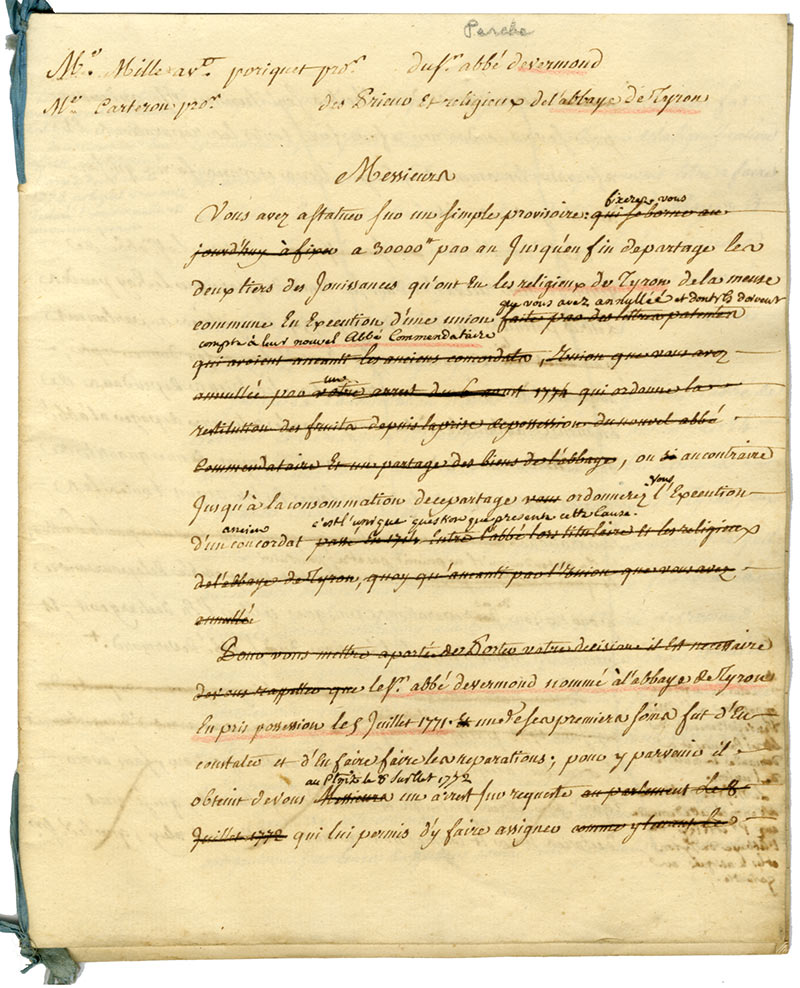 Perche
Me. Mille avt. poriquet pror. du sr. abbé devermond
Me. Carteron pror. des Prieur Et religieux de l'abbaye de Tyron
Messieurs
fixerez vous
Vous avez a statuer sur un simple provisoire: qui se borne au
jourd'huy à fixer a 30000tt par an Jusqu'en fin departage les
deux tiers des Jouissances qu'ont Eu les religieux de Tyron de la mense
que vous avez annullée et dont ils doivent
commune En Execution d'une union faite par des lettres patentes
compte à leur nouvel Abbé Commendataire
qui avoient aneanti les anciens concordats, Union que vous avez
un
annullée par votre arrest du 6 aoust 1774 qui ordonne la
restitution des fruits depuis la prise de possession du nouvel abbé
Commendataire Et un partage des biens de l'abbaye, ou si au contraire
vous
Jusqu'à la consommation de ce partage vous ordonnerez l'Execution
ancien c'est l'unique question que presente cette Cause.
d'un concordat passé En entre l'abbé lors titulaire Et les religieux
de l'abbaye de Tyron, quoy qu'aneanti par l'Union que vous avez
annullé
Pour vous mettre a porté de Porter votre decision il Est necessaire
de vous rapeller que le sr. abbé devermond nommé à l'abbaye de Tyron
En pris possession le 5 Juillet 1771. Et un de ses premiers soins fut d'En
constater et d'En faire faire les reparations; pour y parvenir il
au Plzir le 8 Juillet 1772
obtint de vous Messieurs un arrest sur requeste au parlement le 8
Juillet 1772 qui lui permis d'y faire assigner comme y tenant le